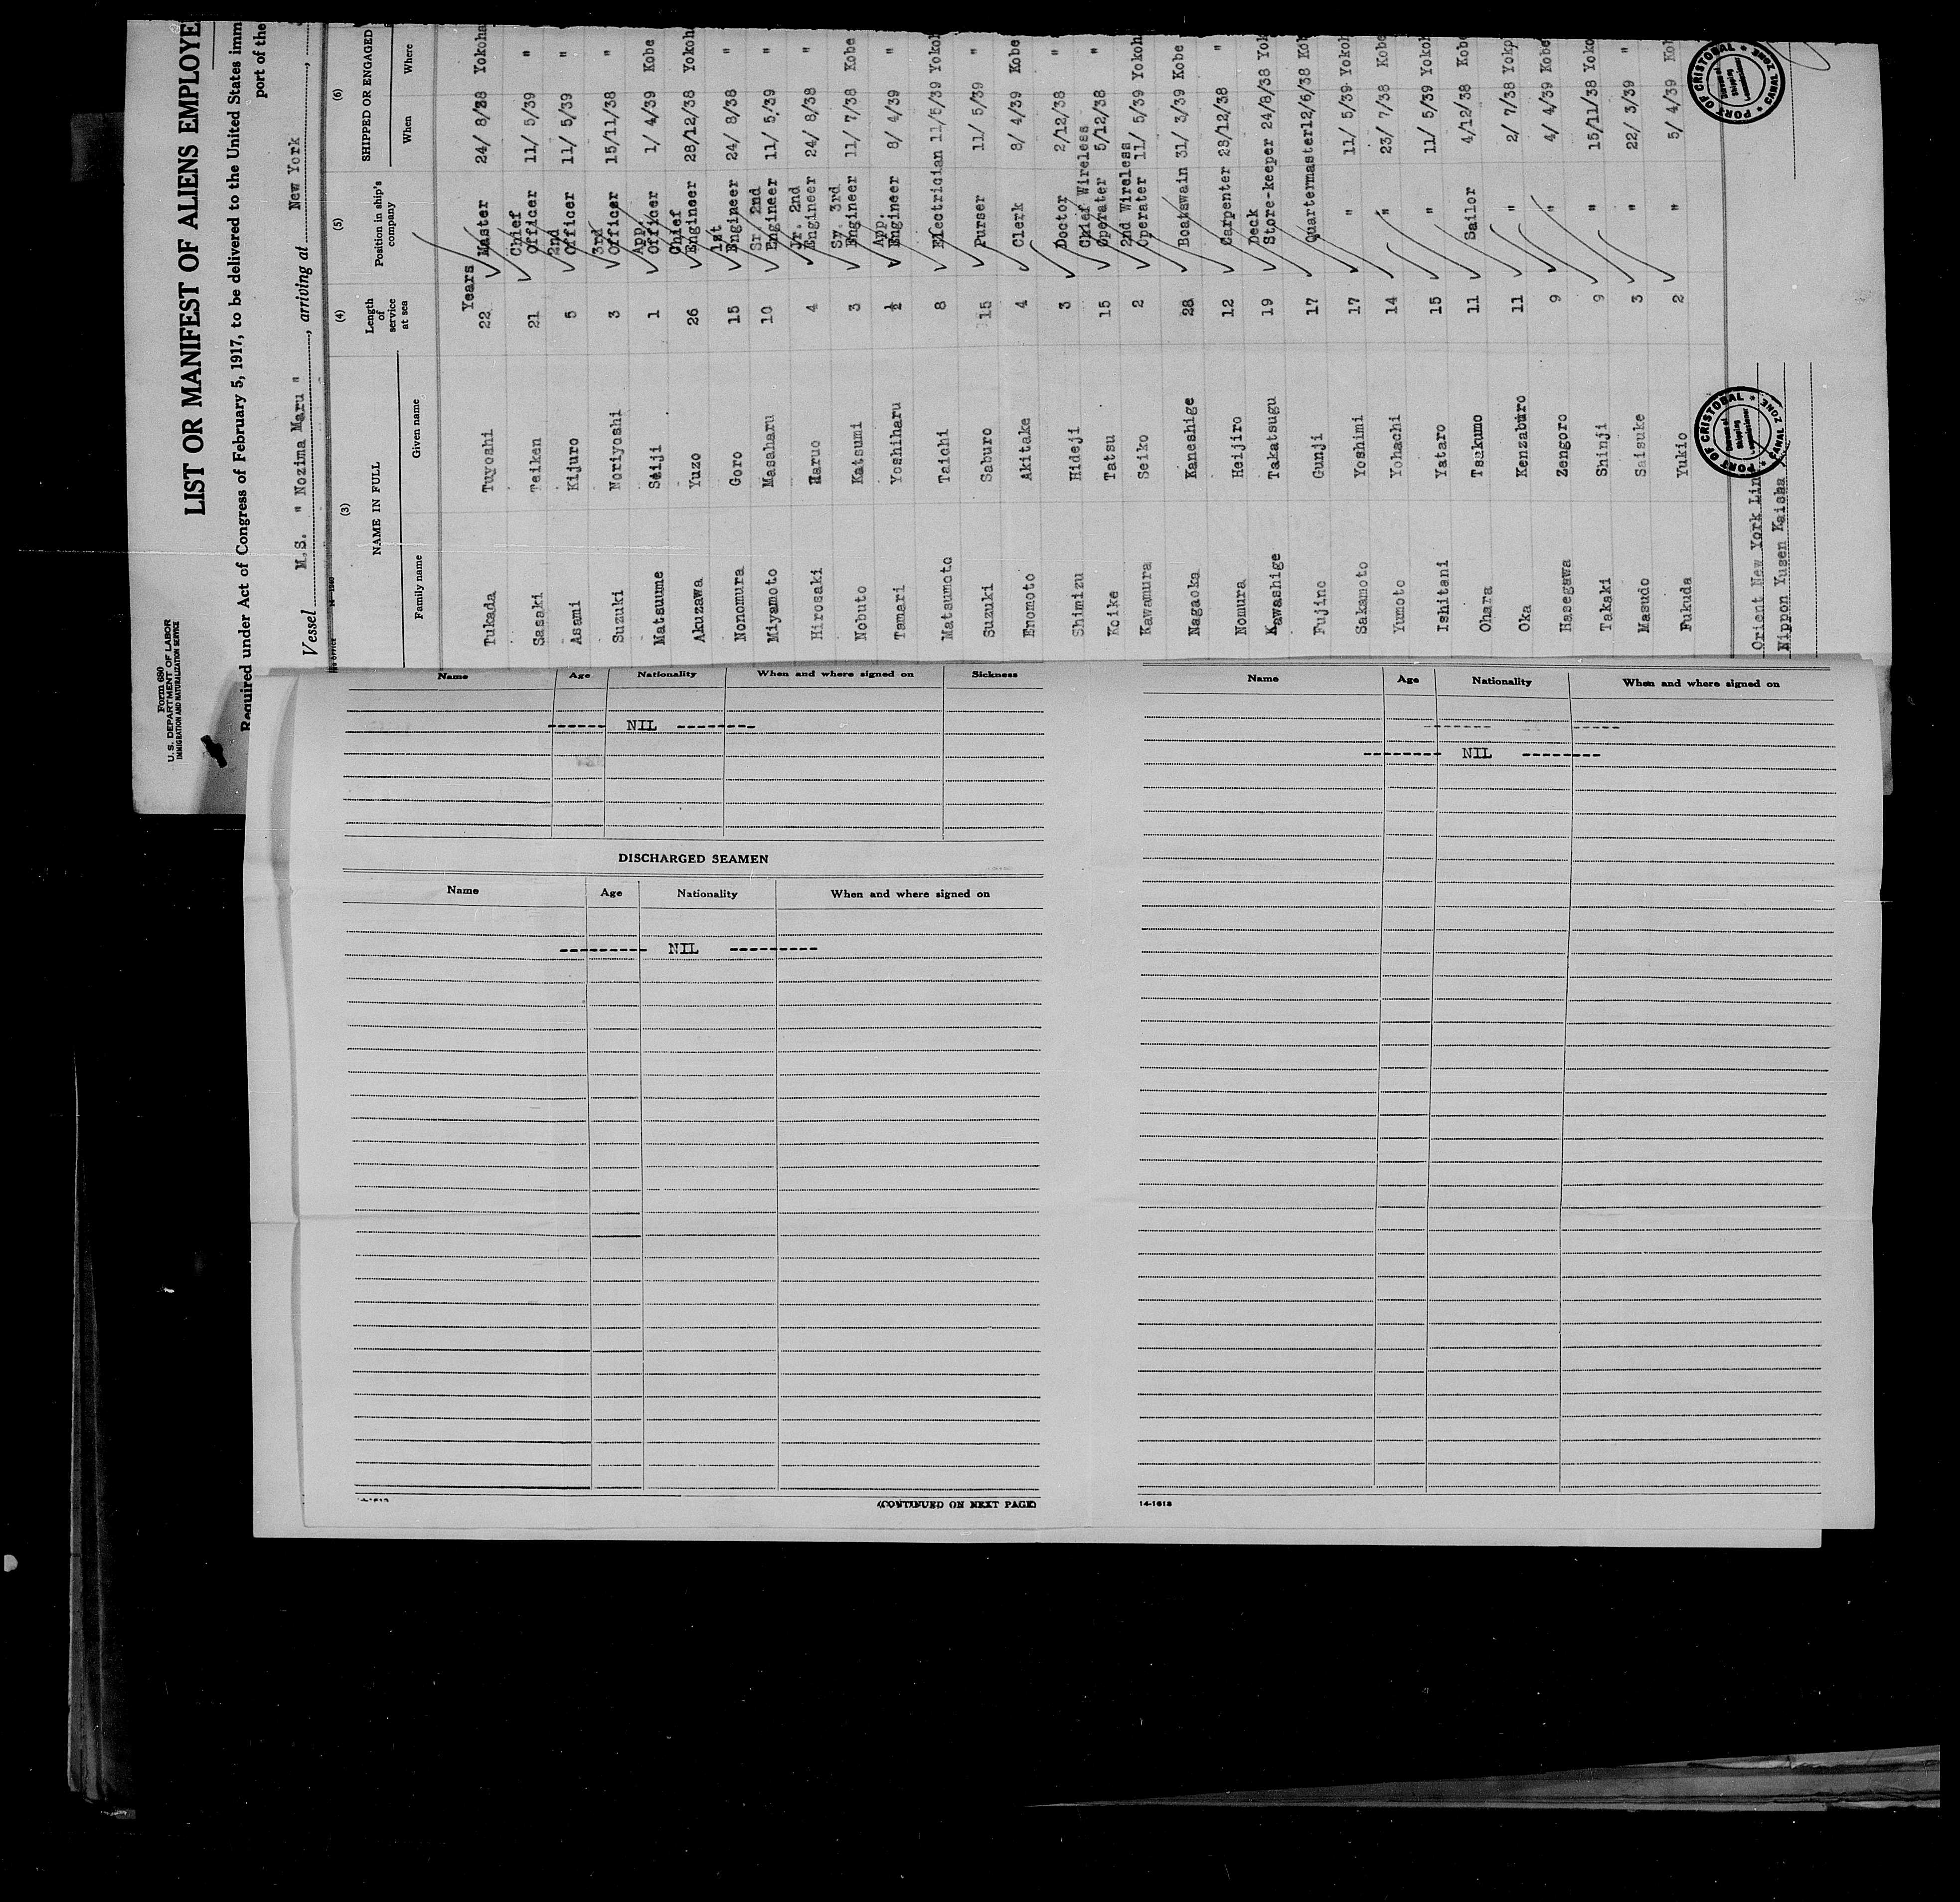 Form 680
U. S. DEPARTMENT OF LABOR
IMMIGRATION AND NATURALIZATION SERVICE
LIST OR MANIFEST OF ALIENS EMPLOYE
Required under Act of Congress of February 5, 1917, to be delivered to the United States imm
port of the
Vessel M.S. " Nozima Maru ", arriving at New York,
(3) (4) (5) (6)
NAME IN FULL Length of service at sea Position in ship's company SHIPPED OR ENGAGED
Family name Given name When Where
Years
Tukada Tuyoshi 22 Master 24/ 8/38 Yokoha
Sasaki Teiken 21 Chief Officer 11/ 5/39 "
Asami Kijuro 5 2nd Officer 11/ 5/39 "
Suzuki Noriyoshi 3 3rd Officer 15/11/38 "
Matsuume Seiji 1 App. Officer 1/ 4/39 Kobe
Akuzawa Yuzo 26 Chief Engineer 28/12/38 Yokoh
Nonomura Goro 15 1st Engineer 24/ 8/38 "
Miyamoto Masaharu 10 Sr. 2nd Engineer 11/ 5/39 "
Hirosaki Haruo 4 Jr. 2nd Engineer 24/ 8/38 "
Nobuto Katsumi 3 Sy. 3rd Engineer 11/ 7/38 Kobe
Tamari Yoshiharu ½ App. Engineer 8/ 4/39 "
Matsumoto Taichi 8 Electrician 11/5/39 Yokoh
Suzuki Saburo 15 Purser 11/ 5/39 "
Enomoto Akitake 4 Clerk 8/ 4/39 Kobe
Shimizu Hideji 3 Doctor 2/12/38 "
Koike Tatsu 15 Chief Wireless Operater 5/12/38 "
Kawamura Seiko 2 2nd Wireless Operater 11/ 5/39 Yokoh
Nagaoka Kaneshige 28 Boatswain 31/ 3/39 Kobe
Nomura Heijiro 12 Carpenter 28/12/38 "
Kawashige Takatsugu 19 Deck Store-keeper 24/8/38 Yok
Fujino Gunji 17 Quartermaster 12/6/38 Kob
Sakamoto Yoshimi 17 " 11/ 5/39 Yokoh
Yumoto Yohachi 14 " 23/ 7/38 Kobe
Ishitani Yataro 15 " 11/ 5/39 Yokoh
Ohara Tsukumo 11 Sailor 4/12/38 Kobe
Oka Kenzaburo 11 " 2/ 7/38 Yoko
Hasegawa Zengoro 9 " 4/ 4/39 Kobe
Takaki Shinji 9 " 15/11/38 Yoko
Masudo Saisuke 3 " 22/ 3/39 "
Fukuda Yukio 2 " 5/ 4/39 Kob
Orient New York Lin
Nippon Yusen Kaisha
PORT OF CRISTOBAL * CANAL ZONE *
PORT OF CRISTOBAL * CANAL ZONE *
Name Age Nationality When and where signed on Sickness
------- NIL ---------
DISCHARGED SEAMEN
Name Age Nationality When and where signed on
---------- NIL ----------
(CONTINUED ON NEXT PAGE)
Name Age Nationality When and where signed on
--------- NIL ---------
14-1613